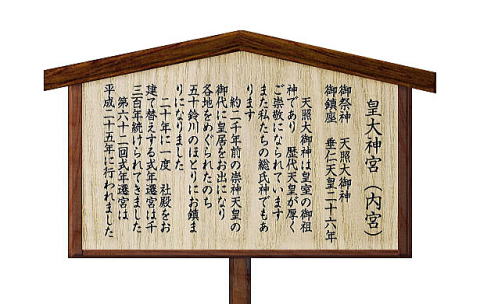 皇大神宮（内宮）
御祭神　天照大御神
御鎮座　垂仁天皇二十六年
天照大御神は皇室の御祖
神であり　歴代天皇が厚く
ご崇敬になられています
また私たちの総氏神でもあ
ります
約二千年前の崇神天皇の
御代に皇居をお出になり
各地をめぐられたのち
五十鈴川のほとりにお鎮ま
りになりました
二十年に一度　社殿をお
建て替えする式年遷宮は千
三百年続けられてきました
第六十二回式年遷宮は
平成二十五年に行われました